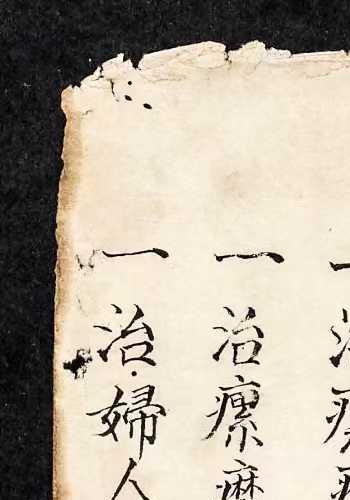 一治
一治瘰癧
一治婦人